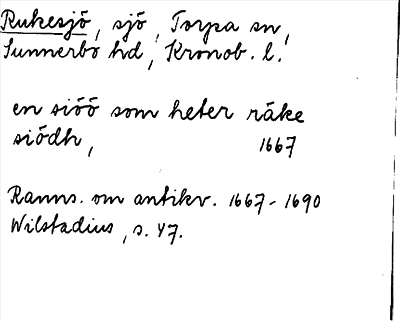 Rukesjö, sjö, Torpa sn,
Sunnerbo hd, Kronob. l.
en siöö som heter råke
siödh, 1667
Ranns. om antikv. 1667-1690
Wilstadius, s. 47.